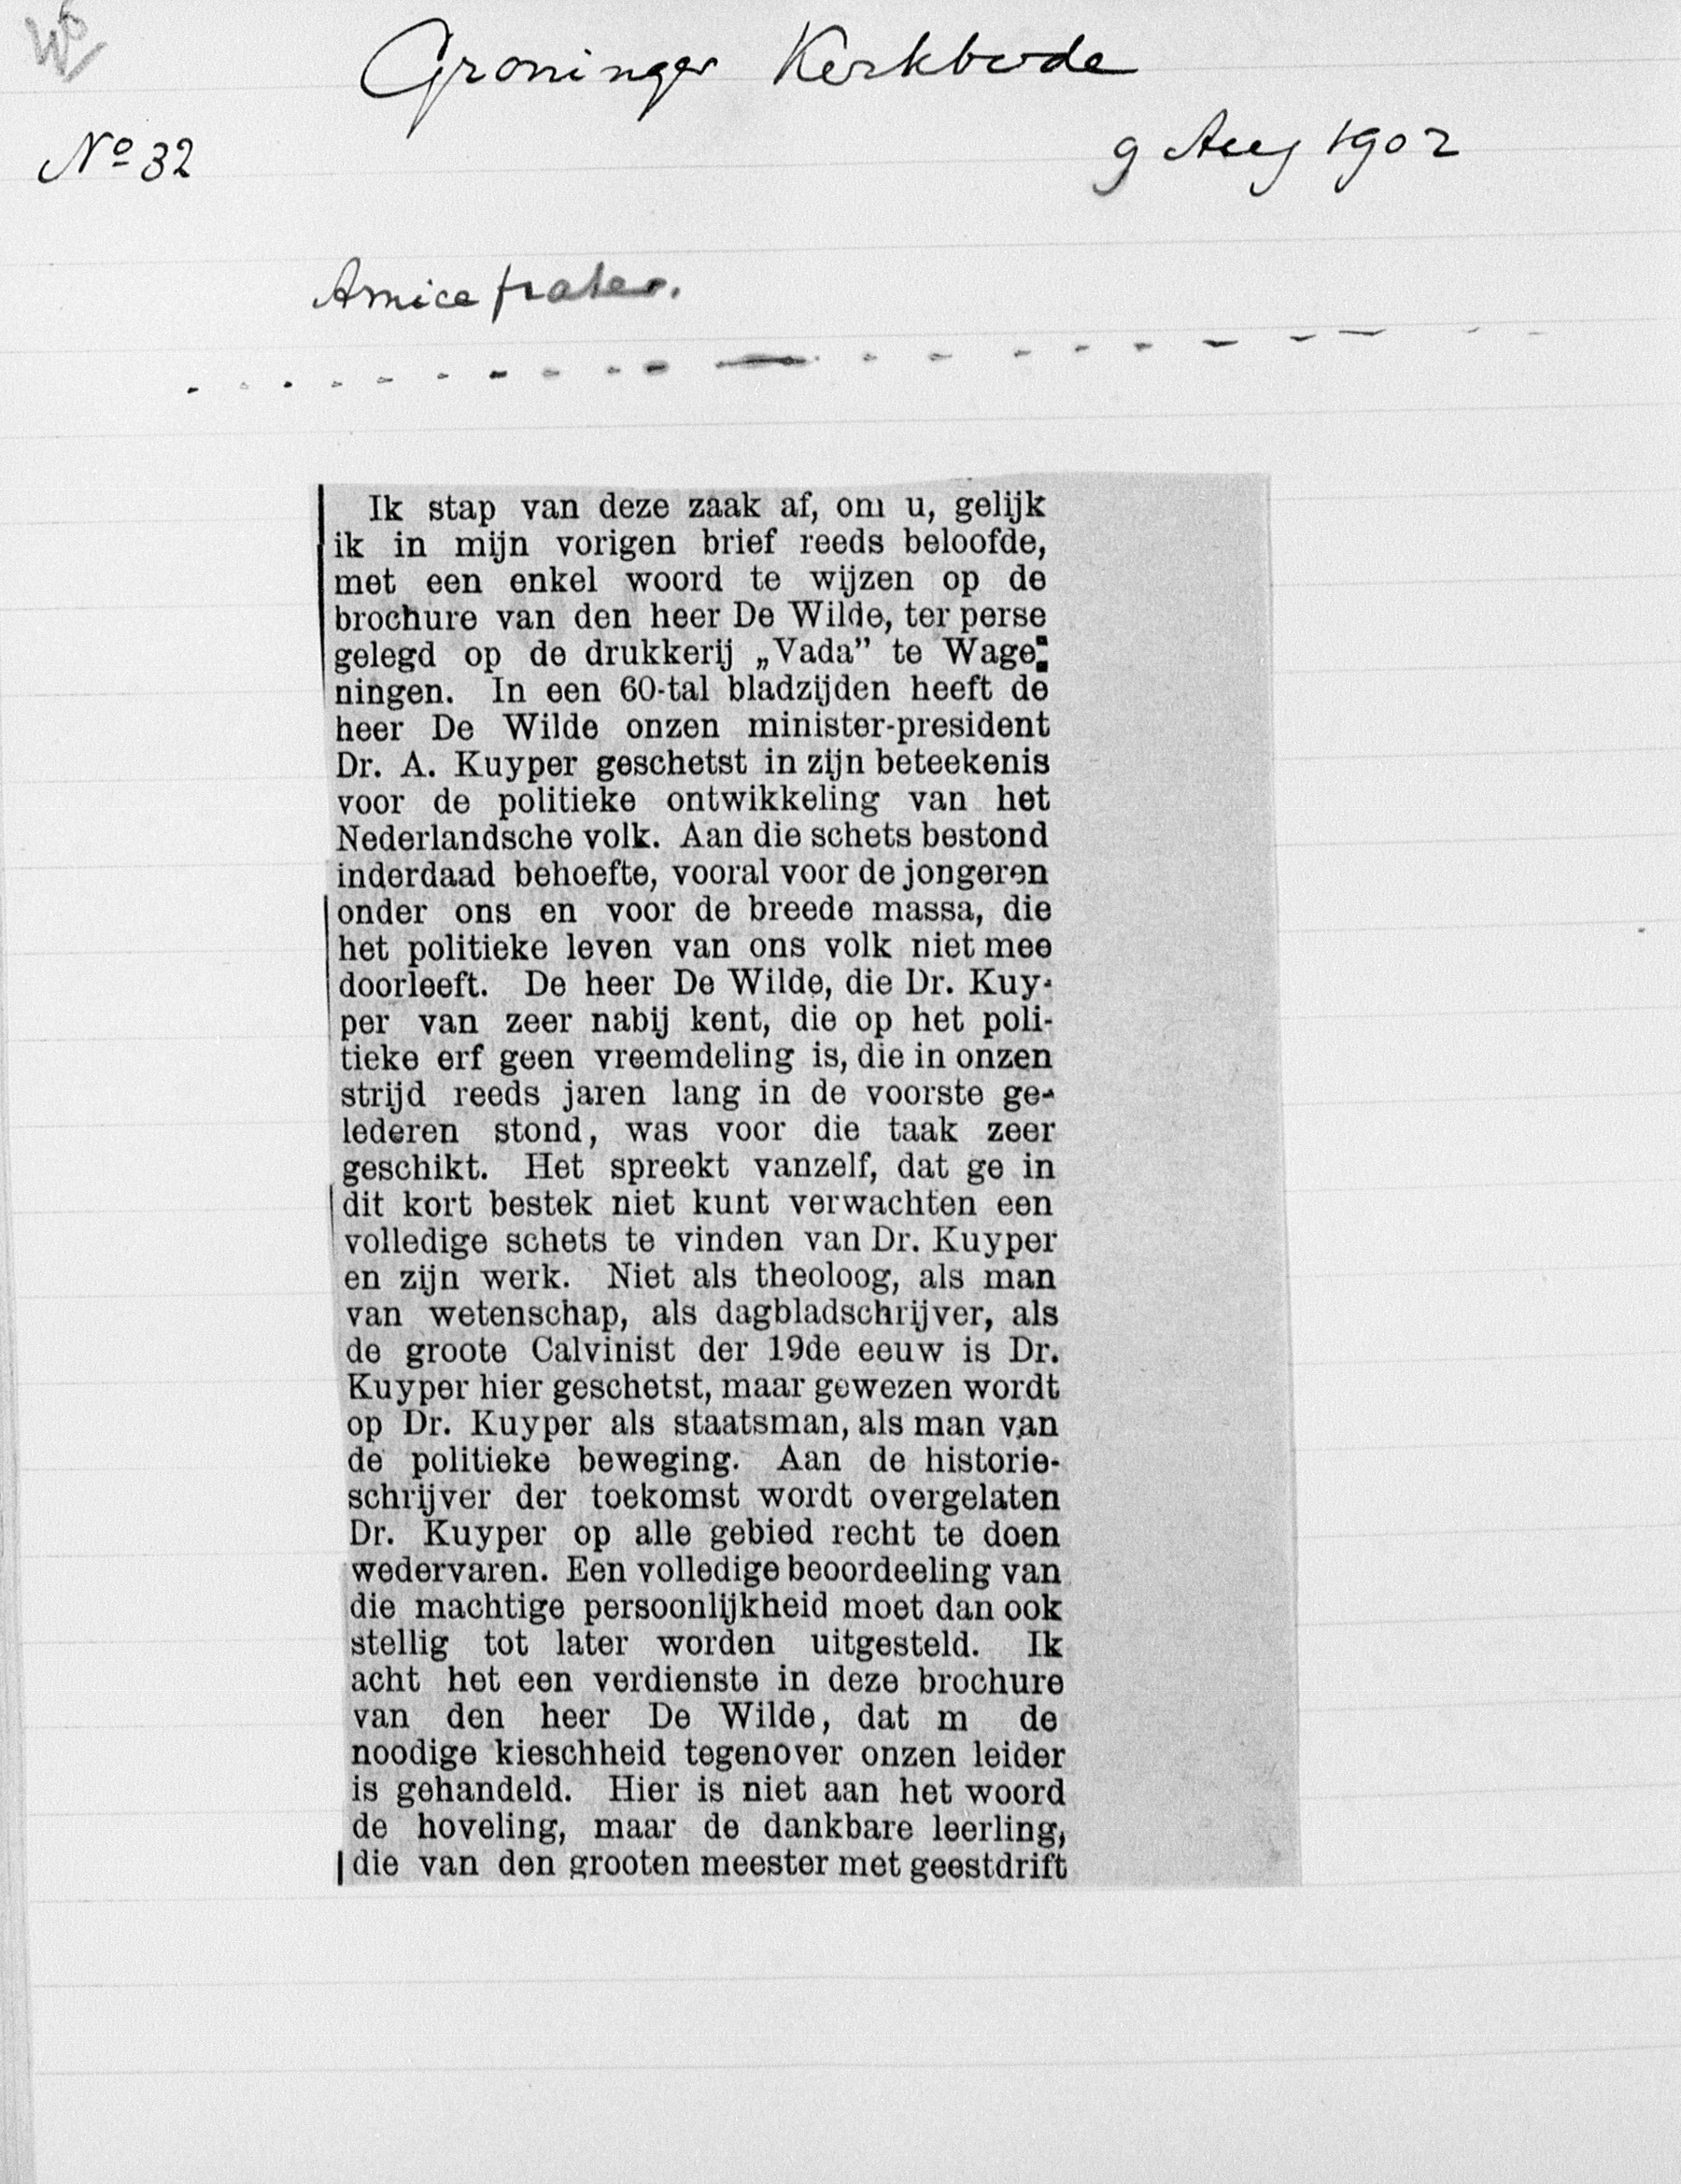 Groninger Kerkbode
Nº 32
9 Aug 1902
Amice frater.
Ik stap van deze zaak af, om u, gelijk
ik in mijn vorigen brief reeds beloofde,
met een enkel woord te wijzen op de
brochure van den heer De Wilde, ter perse
gelegd op de drukkerij „Vada” te Wage-
ningen. In een 60-tal bladzijden heeft de
heer De Wilde onzen minister-president
Dr. A. Kuyper geschetst in zijn beteekenis
voor de politieke ontwikkeling van het
Nederlandsche volk. Aan die schets bestond
inderdaad behoefte, vooral voor de jongeren
onder ons en voor de breede massa, die
het politieke leven van ons volk niet mee
doorleeft. De heer De Wilde, die Dr. Kuy-
per van zeer nabij kent, die op het poli-
tieke erf geen vreemdeling is, die in onzen
strijd reeds jaren lang in de voorste ge-
lederen stond, was voor die taak zeer
geschikt. Het spreekt vanzelf, dat ge in
dit kort bestek niet kunt verwachten een
volledige schets te vinden van Dr. Kuyper
en zijn werk. Niet als theoloog, als man
van wetenschap, als dagbladschrijver, als
de groote Calvinist der 19de eeuw is Dr.
Kuyper hier geschetst, maar gewezen wordt
op Dr. Kuyper als staatsman, als man van
de politieke beweging. Aan de historie-
schrijver der toekomst wordt overgelaten
Dr. Kuyper op alle gebied recht te doen
wedervaren. Een volledige beoordeeling van
die machtige persoonlijkheid moet dan ook
stellig tot later worden uitgesteld. Ik
acht het een verdienste in deze brochure
van den heer De Wilde, dat m de
noodige kieschheid tegenover onzen leider
is gehandeld. Hier is niet aan het woord
de hoveling, maar de dankbare leerling,
die van den grooten meester met geestdrift